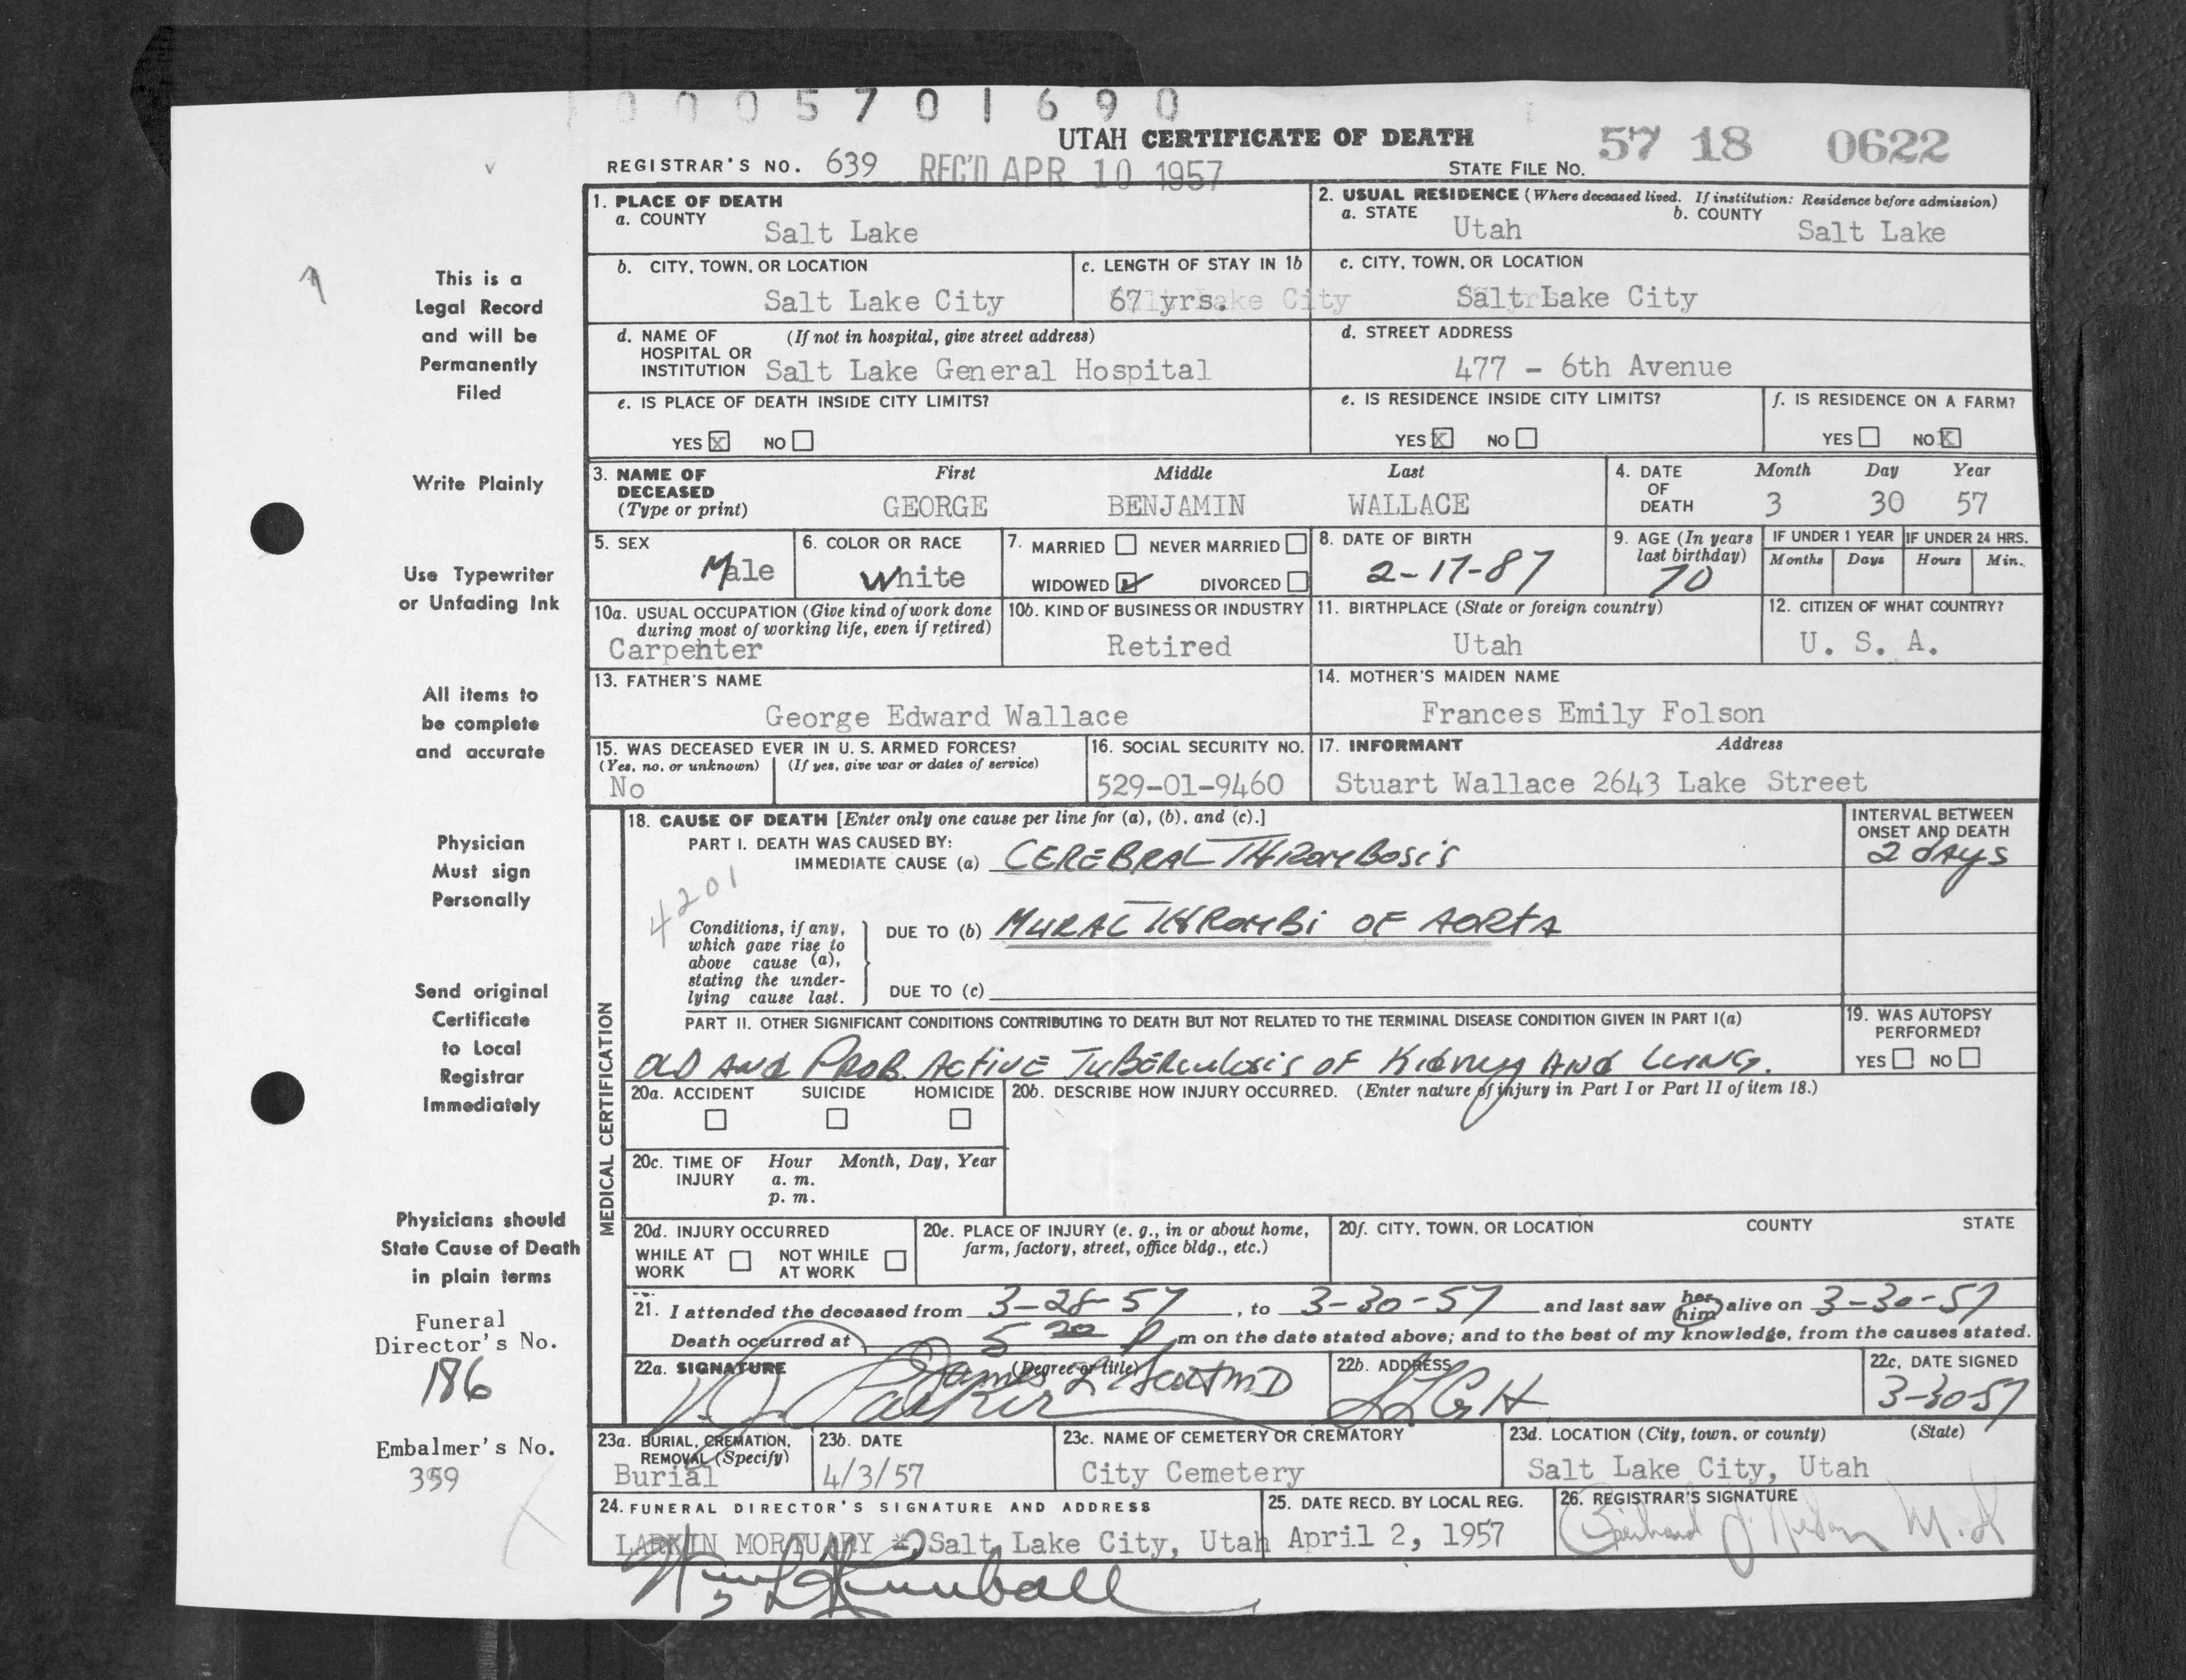 0005701690
UTAH CERTIFICATE OF DEATH
57 18 0622
REGISTRAR'S NO. 639 REC'D APR 10 1957 STATE FILE No.
1. PLACE OF DEATH
a. COUNTY
Salt Lake
2. USUAL RESIDENCE (Where deceased lived. If institution: Residence before admission)
a. STATE b. COUNTY
Utah Salt Lake
b. CITY, TOWN, OR LOCATION
Salt Lake City
c. LENGTH OF STAY IN 1b
67 yrs.
c. CITY, TOWN, OR LOCATION
Salt Lake City
d. NAME OF (If not in hospital, give street address)
HOSPITAL OR
INSTITUTION Salt Lake General Hospital
d. STREET ADDRESS
477 - 6th Avenue
e. IS PLACE OF DEATH INSIDE CITY LIMITS?
YES X NO
e. IS RESIDENCE INSIDE CITY LIMITS?
YES X NO
f. IS RESIDENCE ON A FARM?
YES NO X
3. NAME OF First Middle Last
DECEASED
(Type or print) GEORGE BENJAMIN WALLACE
4. DATE Month Day Year
OF
DEATH 3 30 57
5. SEX
Male
6. COLOR OR RACE
White
7. MARRIED NEVER MARRIED
WIDOWED ✓ DIVORCED
8. DATE OF BIRTH
2-17-87
9. AGE (In years
last birthday)
70
IF UNDER 1 YEAR IF UNDER 24 HRS.
Months Days Hours Min.
10a. USUAL OCCUPATION (Give kind of work done
during most of working life, even if retired)
Carpenter
10b. KIND OF BUSINESS OR INDUSTRY
Retired
11. BIRTHPLACE (State or foreign country)
Utah
12. CITIZEN OF WHAT COUNTRY?
U. S. A.
13. FATHER'S NAME
George Edward Wallace
14. MOTHER'S MAIDEN NAME
Frances Emily Folson
15. WAS DECEASED EVER IN U. S. ARMED FORCES?
(Yes, no, or unknown) (If yes, give war or dates of service)
No
16. SOCIAL SECURITY NO.
529-01-9460
17. INFORMANT Address
Stuart Wallace 2643 Lake Street
MEDICAL CERTIFICATION
18. CAUSE OF DEATH [Enter only one cause per line for (a), (b), and (c).]
PART I. DEATH WAS CAUSED BY:
IMMEDIATE CAUSE (a) CEREBRAL THROMBOSIS
INTERVAL BETWEEN
ONSET AND DEATH
2 days
4201
Conditions, if any,
which gave rise to
above cause (a),
stating the under-
lying cause last.
DUE TO (b) MURAL THROMBI OF AORTA
DUE TO (c)
PART II. OTHER SIGNIFICANT CONDITIONS CONTRIBUTING TO DEATH BUT NOT RELATED TO THE TERMINAL DISEASE CONDITION GIVEN IN PART I(a)
OLD AND PROB. ACTIVE TUBERCULOSIS OF KIDNEY AND LUNG.
19. WAS AUTOPSY
PERFORMED?
YES NO
20a. ACCIDENT SUICIDE HOMICIDE
20b. DESCRIBE HOW INJURY OCCURRED. (Enter nature of injury in Part I or Part II of item 18.)
20c. TIME OF Hour Month, Day, Year
INJURY a. m.
p. m.
20d. INJURY OCCURRED
WHILE AT NOT WHILE
WORK AT WORK
20e. PLACE OF INJURY (e. g., in or about home,
farm, factory, street, office bldg., etc.)
20f. CITY, TOWN, OR LOCATION COUNTY STATE
21. I attended the deceased from 3-28-57, to 3-30-57 and last saw her him alive on 3-30-57
Death occurred at 5 20 P m on the date stated above; and to the best of my knowledge, from the causes stated.
22a. SIGNATURE (Degree or title)
Parker James MD
22b. ADDRESS
SLGH
22c. DATE SIGNED
3-30-57
23a. BURIAL, CREMATION,
REMOVAL (Specify)
Burial
23b. DATE
4/3/57
23c. NAME OF CEMETERY OR CREMATORY
City Cemetery
23d. LOCATION (City, town, or county) (State)
Salt Lake City, Utah
24. FUNERAL DIRECTOR'S SIGNATURE AND ADDRESS
LARKIN MORTUARY Salt Lake City, Utah
Kimball
25. DATE RECD. BY LOCAL REG.
April 2, 1957
26. REGISTRAR'S SIGNATURE
This is a
Legal Record
and will be
Permanently
Filed
Write Plainly
Use Typewriter
or Unfading Ink
All items to
be complete
and accurate
Physician
Must sign
Personally
Send original
Certificate
to Local
Registrar
Immediately
Physicians should
State Cause of Death
in plain terms
Funeral
Director's No.
186
Embalmer's No.
359